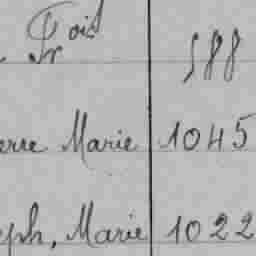 Fr ois 588
erre Marie 1045
eph, Marie 1022